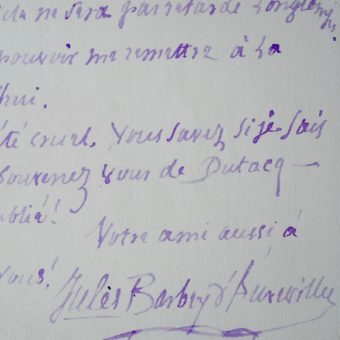 ne sera pas retardé longtemps.
pouvoir me remettre à La
hui.
été cruel. Vous savez si je sais
souvenez vous de Dutacq —
ublié!
Votre ami aussi à
vous!
Jules Barbey d'Aurevilly